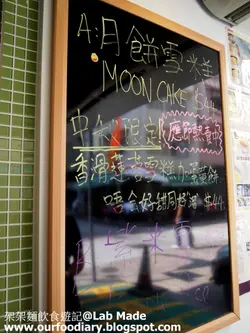 A:月餅雪糕
MOON CAKE $44
中秋限定 應節熱賣中
香滑蓮蓉雪糕加蛋黃餅
唔會好甜同好滯 $44
紫米雪
架架麵飲食遊記@Lab Made
www.ourfoodiary.blogspot.com